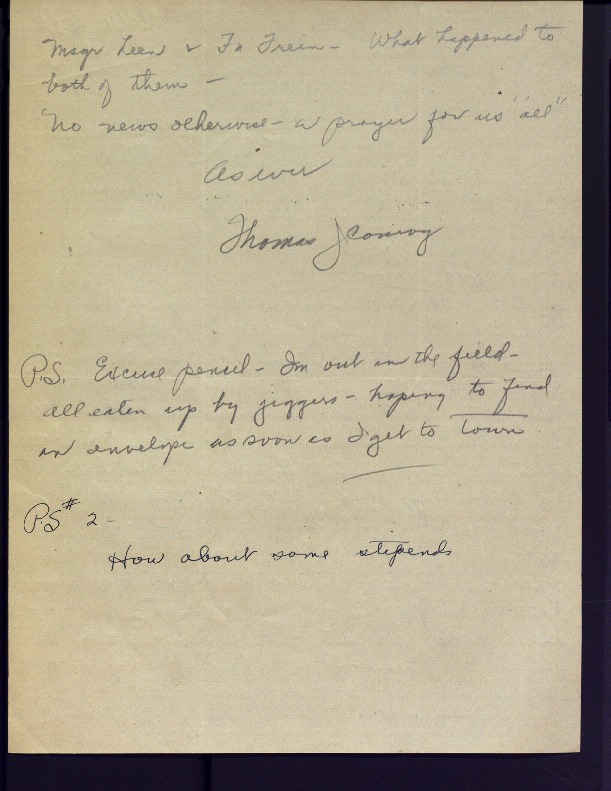 Msgr Leen & Fr Frein - What happened to
both of them -
No news otherwise - a prayer for us "all"
As ever
Thomas J Conroy
P.S. Excuse pencil - Im out in the field -
all eaten up by jiggers - hoping to find
an envelope as soon as I get to town
PS # 2 -
How about some stipends